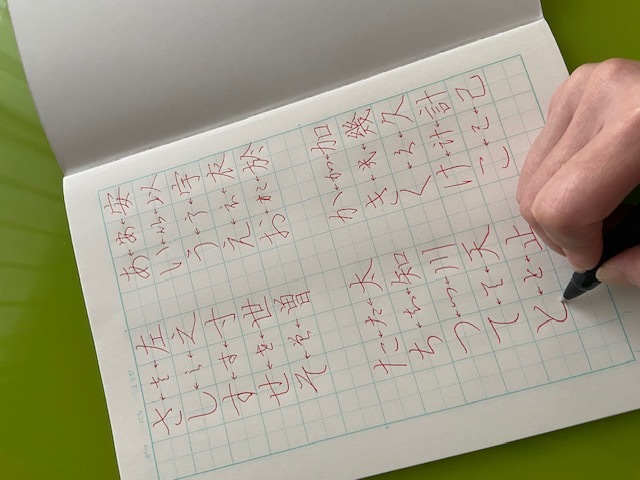 安↓あ↓あ
以↓い↓い
宇↓う↓う
衣↓え↓え
於↓お↓お
加↓か↓か
幾↓き↓き
久↓く↓く
計↓け↓け
己↓こ↓こ
左↓さ↓さ
之↓し↓し
寸↓す↓す
世↓せ↓せ
曽↓そ↓そ
太↓た↓た
知↓ち↓ち
川↓つ↓つ
天↓て↓て